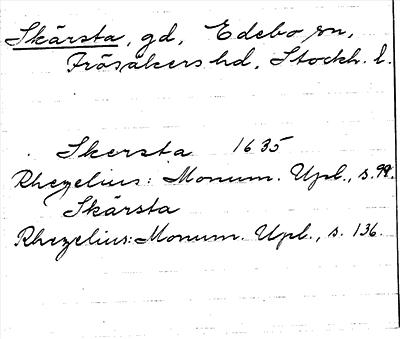 Skärsta, gd, Edebo sn,
Frösåkers hd, Stockh. l.
Skersta 1635
Rhezelius: Monum. Upl., s. 99.
Skärsta
Rhezelius: Monum. Upl., s. 136.